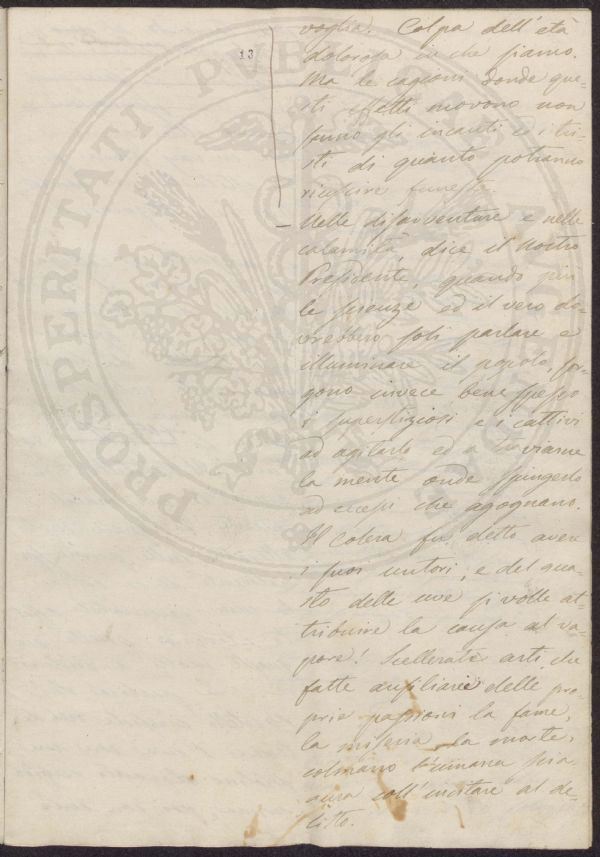 13
voglia. Colpa dell'età
dolorosa in che siamo.
Ma le cagioni donde que-
sti effetti movono non
sono gli incauti ed i tri-
sti di quanto potranno
riuscire funeste.
– Nelle disavventure e nelle
calamità, dice il nostro
Presidente, quando più
le scienze ed il vero do-
vrebbero soli parlare e
illuminare il popolo, sor-
gono invece bene spesso
i superstiziosi e i cattivi
ad agitarlo ed a sviarne
la mente onde spingerlo
ad eccessi che agognano.
Il Colera fu detto avere
i suoi untori; e del gua-
sto delle uve si volle at-
tribuire la causa al va-
pore! Scellerate arti, che
fatte ausiliarie delle pro-
prie passioni la fame,
la miseria la morte,
colmano
coll'incitare al de-
litto.
PROSPERITATI PVBLICAE